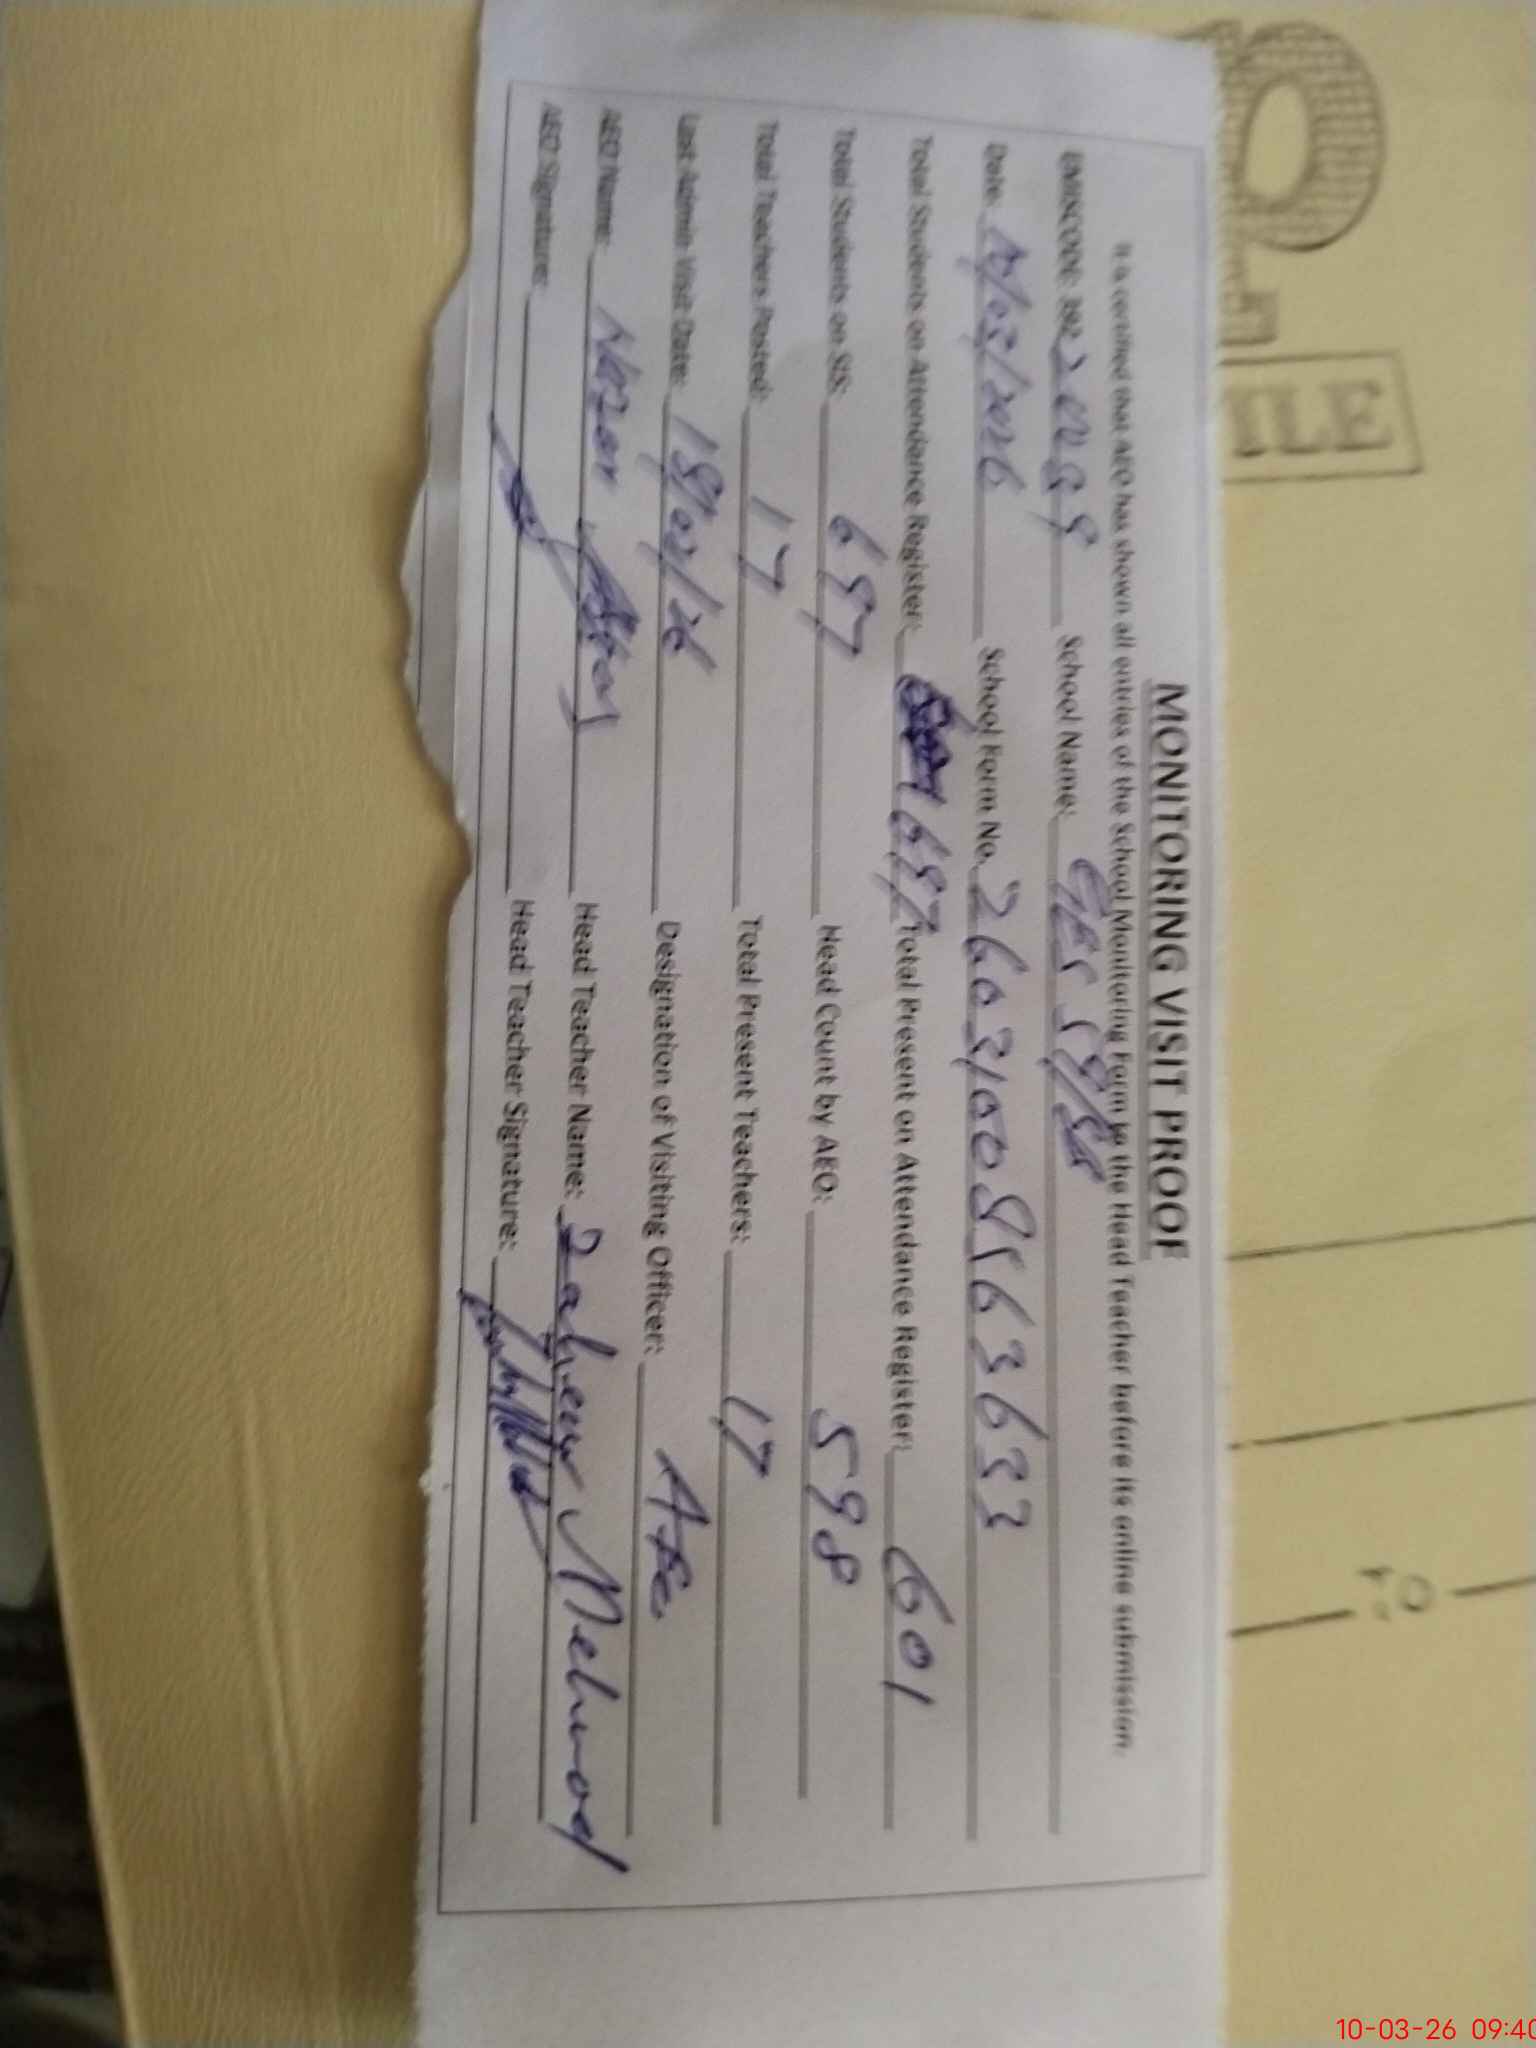 MONITORING VISIT PROOF
It is certified that AEO has shown all entries of the School Monitoring Form to the Head Teacher before its online submission.
EMISCODE: 392 School Name: GES 59/SB
Date: 10/03/2026 School Form No. 26031008563633
Total Students on Attendance Register: 697 Total Present on Attendance Register: 601
Total Students on SIS: 697 Head Count by AEO: 598
Total Teachers Posted: 17 Total Present Teachers: 17
Last Admin Visit Date: 18/02/26 Designation of Visiting Officer: AEO
AEO Name: Head Teacher Name: Mehmood
AEO Signature: Head Teacher Signature:
ILE
TO
10-03-26 09:40